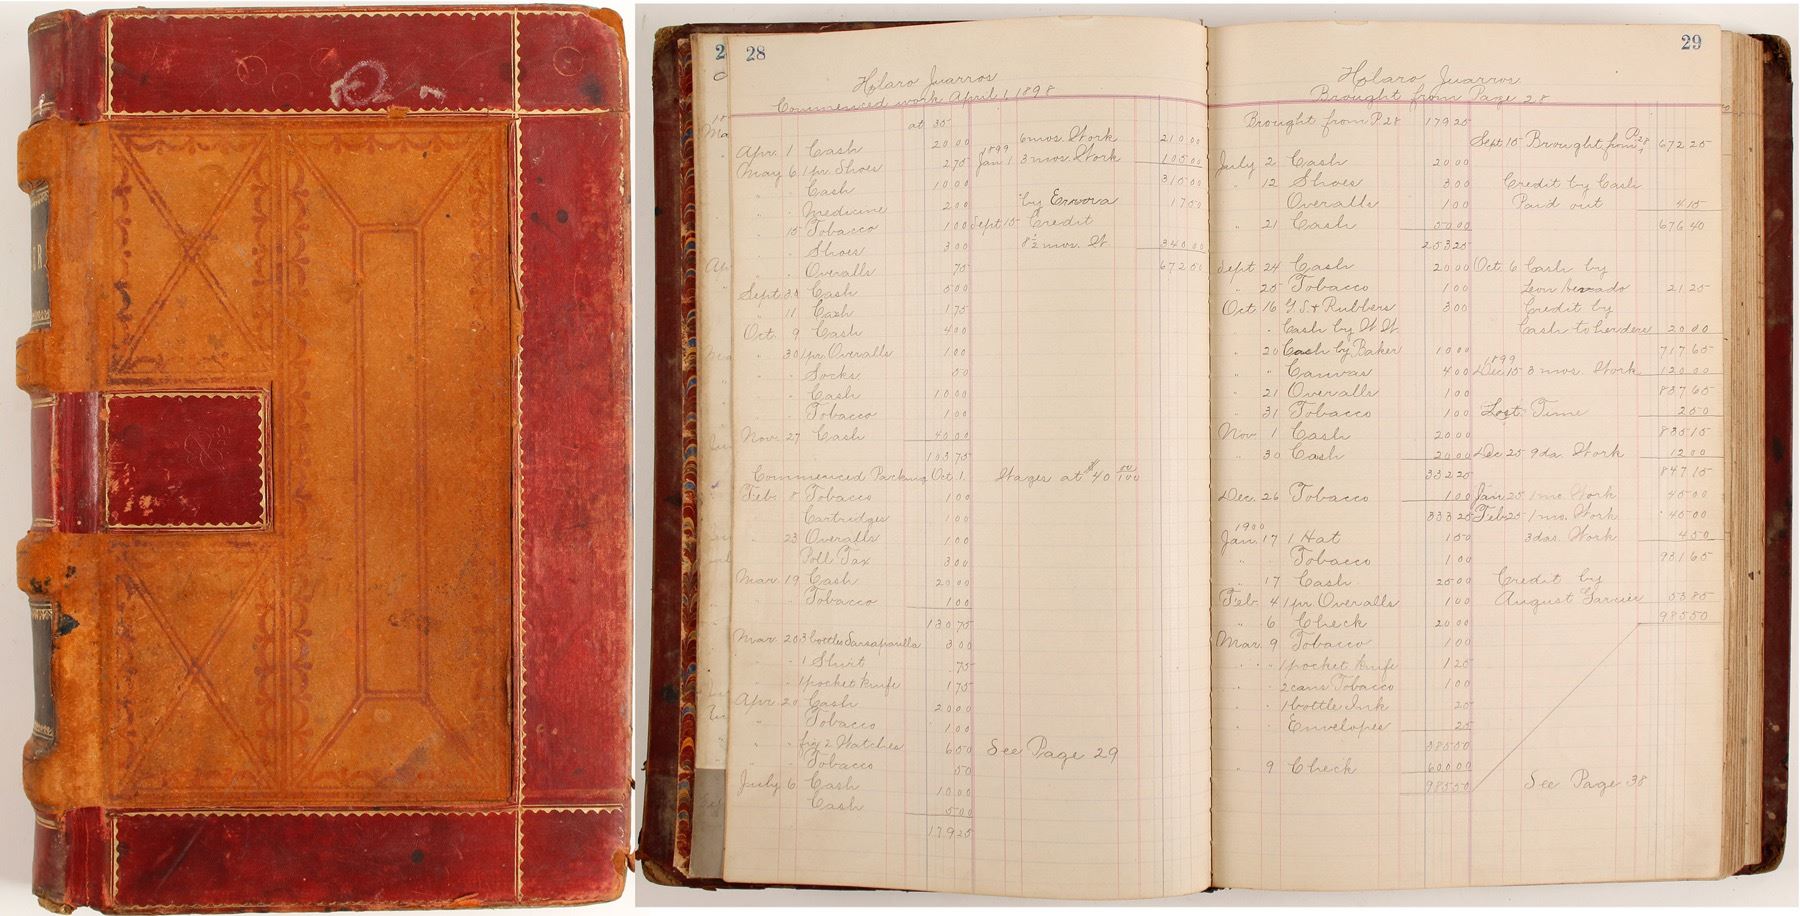 28
Holaro Juarros
Commenced work April 1, 1898
at 35
Apr. 1 Cash 20 00
6 mos. Work 210 00
May 6 1 pr. Shoes 2 75
1899
Jan 1 3 mos. Work 105 00
" " Cash 10 00
315 00
" " Medicine 2 00
by Errors 17 50
" 15 Tobacco 1 00
Sept 15 Credit
" " Shoes 3 00
8½ mos. W. 340 00
" " Overalls 75
672 50
Sept. 30 Cash 5 00
" 11 Cash 1 75
Oct. 9 Cash 4 00
" 30 1 pr. Overalls 1 00
" " Socks 50
" " Cash 10 00
" " Tobacco 1 00
Nov. 27 Cash 40 00
103 75
Commenced Packing Oct. 1. Wages at $40 00/100
Feb. 8 Tobacco 1 00
Cartridges 1 00
" 23 Overalls 1 00
Poll Tax 3 00
Mar. 19 Cash 20 00
" " Tobacco 1 00
130 75
Mar. 20 3 bottles Sarsaparilla 3 00
" " 1 Shirt 75
" " 1 pocket knife 1 75
Apr. 20 Cash 20 00
" Tobacco 1 00
" " fix'g 2 Watches 6 50
See Page 29
" " Tobacco 50
July 6 Cash 10 00
Cash 5 00
179 25
29
Holaro Juarros
Brought from Page 28
Brought from P. 28 179 25
Sept 15 Brought from P 28 672 25
July 2 Cash 20 00
" 12 Shoes 3 00
Credit by Cash
Overalls 1 00
Paid out 4 15
" 21 Cash 50 00
676 40
253 25
Sept. 24 Cash 20 00
Oct. 6 Cash by
" 25 Tobacco 1 00
Leon 21 25
Oct. 16 G. S. & Rubbers 3 00
Credit by
" " Cash by W. W.
Cash to herders 20 00
" 20 Cash by Baker 10 00
717 65
" " Canvas 4 00
1899
Dec. 15 3 mos. Work 120 00
" 21 Overalls 1 00
837 65
" 31 Tobacco 1 00
Lost Time 2 50
Nov. 1 Cash 20 00
835 15
" 30 Cash 20 00
Dec 25 9 da. Work 12 00
332 25
847 15
Dec. 26 Tobacco 1 00
Jan 25 1 mo. Work 40 00
333 25
Feb 25 1 mo. Work 40 00
1900
Jan. 17 1 Hat 1 50
3 das. Work 4 50
" Tobacco 1 00
931 65
" 17 Cash 25 00
Credit by
Feb. 4 1 pr. Overalls 1 00
August Garcier 53 85
" 6 Check 20 00
985 50
Mar. 9 Tobacco 1 00
" " 1 pocket knife 1 25
" " 2 cans Tobacco 1 00
" " 1 bottle Ink 25
" " Envelopes 25
385 50
" 9 Check 600 00
985 50
See Page 38